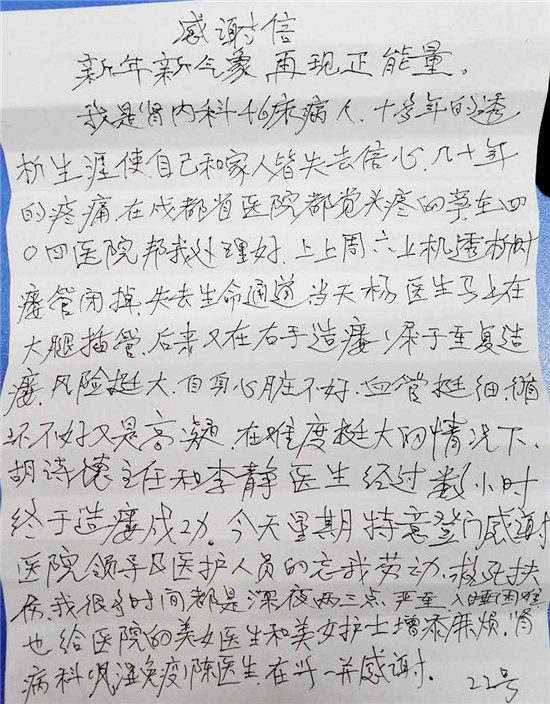 感谢信
新年新气象 再现正能量。
我是肾内科46床病人,十多年的透
析生涯使自己和家人皆失去信心,几十年
的疼痛,在成都省医院都觉头疼的事,在四
0四医院帮我处理好,上上周六上机透析时
瘘管闭掉,失去生命通道,当天杨医生马上在
大腿插管,后来又在右手造瘘,属于至复造
瘘,风险挺大,自身心脏不好,血管挺细,循
环不好又是高凝,在难度挺大的情况下,
胡诗德主任和李静医生经过数小时
终于造瘘成功。今天星期特意登门感谢
医院领导及医护人员的忘我劳动,救死扶
伤,我很多时间都是深夜两三点严重入睡困难
也给医院的美女医生和美女护士增添麻烦,肾
病科风湿免疫陈医生,在乎一并感谢。
22号